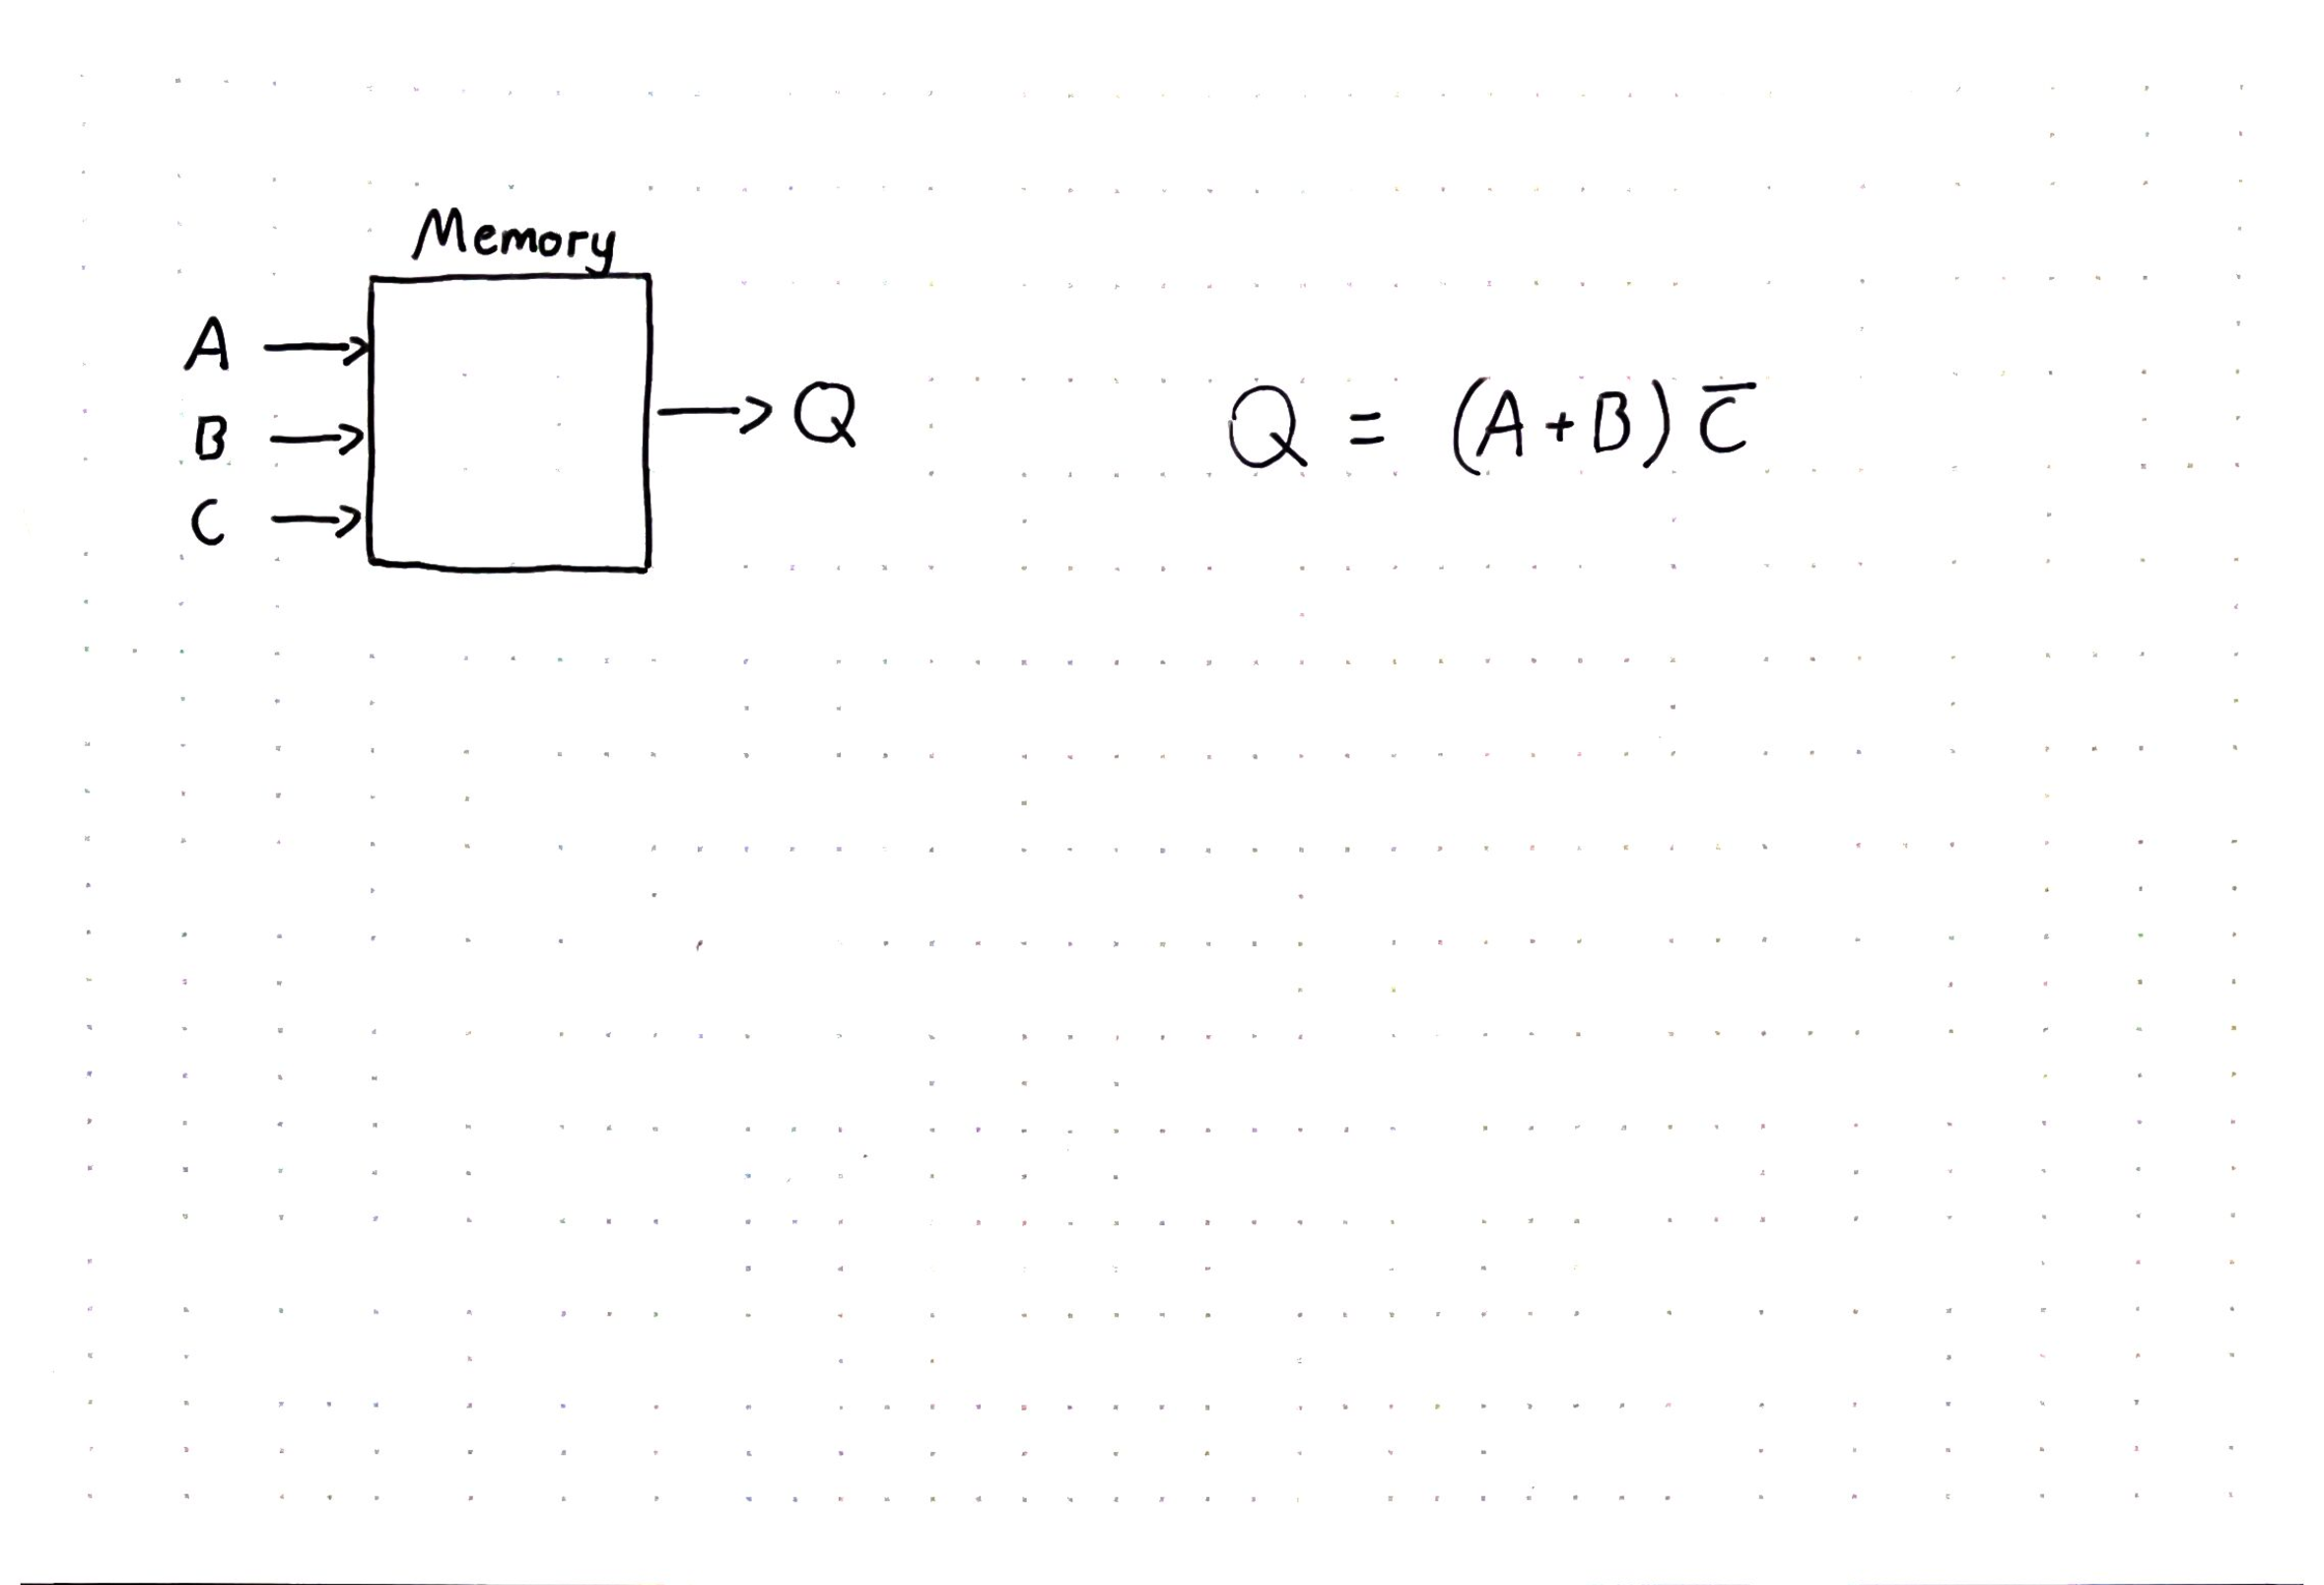 Memory
A
B
C
Q
Q = (A+B) C̅